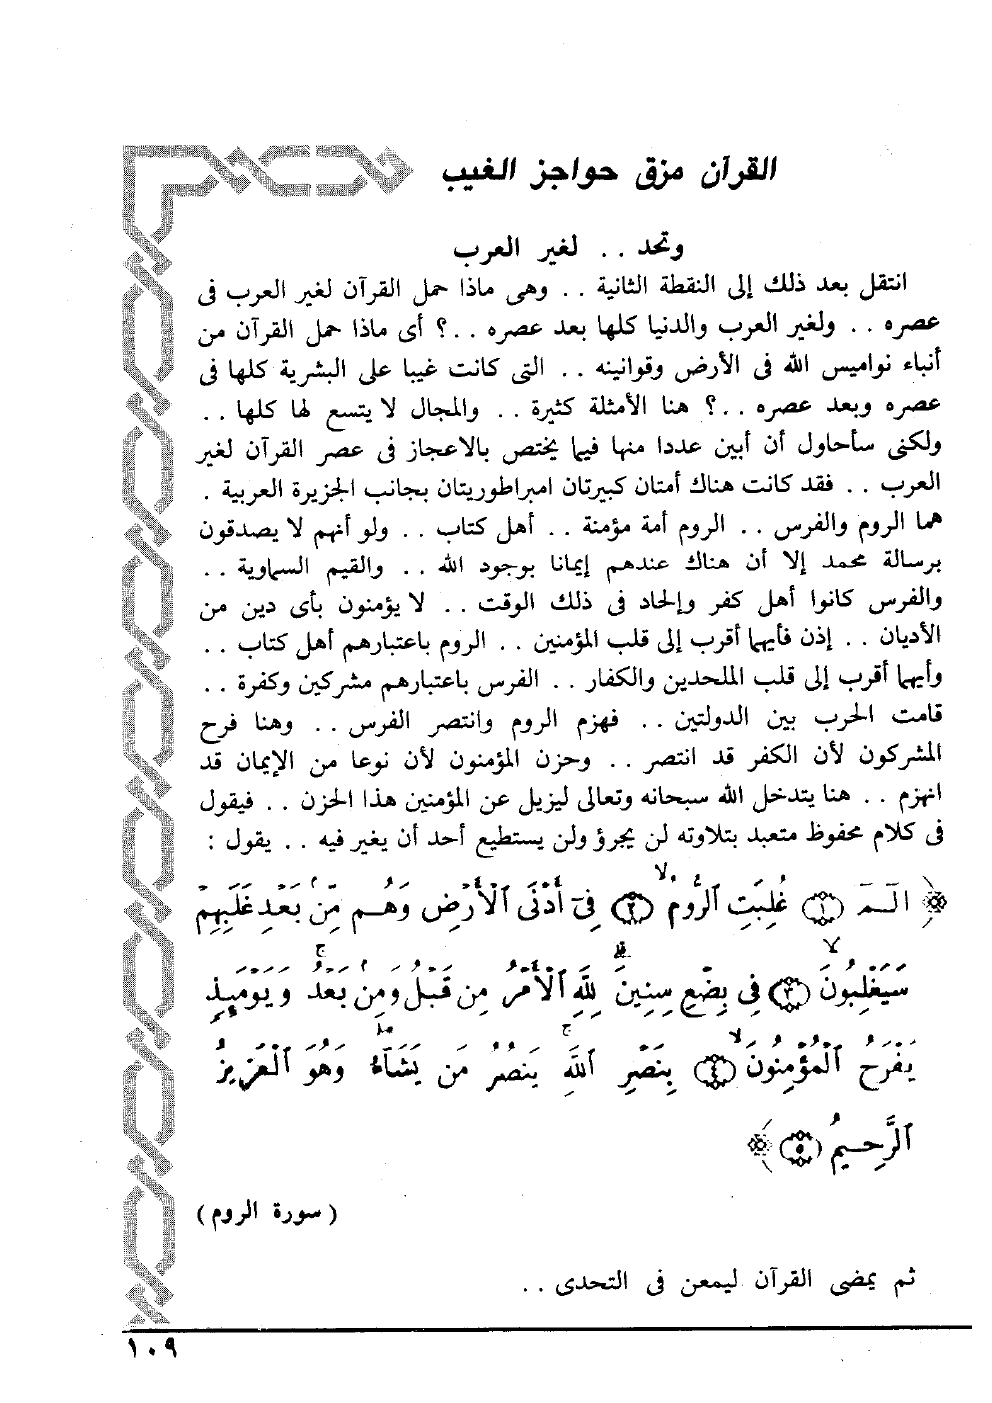 القرآن مزق حواجز الغيب
وتحد .. لغير العرب
انتقل بعد ذلك إلى النقطة الثانية .. وهى ماذا حمل القرآن لغير العرب فى
عصره .. ولغير العرب والدنيا كلها بعد عصره ..؟ أى ماذا حمل القرآن من
أنباء نواميس الله فى الأرض وقوانينه .. التى كانت غيبا على البشرية كلها فى
عصره وبعد عصره ..؟ هنا الأمثلة كثيرة .. والمجال لا يتسع لها كلها ..
ولكنى سأحاول أن أبين عددا منها فيما يختص بالاعجاز فى عصر القرآن لغير
العرب .. فقد كانت هناك أمتان كبيرتان امبراطوريتان بجانب الجزيرة العربية .
هما الروم والفرس .. الروم أمة مؤمنة .. أهل كتاب .. ولو أنهم لا يصدقون
برسالة محمد إلا أن هناك عندهم إيمانا بوجود الله .. والقيم السماوية ..
والفرس كانوا أهل كفر وإلحاد فى ذلك الوقت .. لا يؤمنون بأى دين من
الأديان .. إذن فأيهما أقرب إلى قلب المؤمنين .. الروم باعتبارهم أهل كتاب ..
وأيهما أقرب إلى قلب الملحدين والكفار .. الفرس باعتبارهم مشركين وكفرة ..
قامت الحرب بين الدولتين .. فهزم الروم وانتصر الفرس .. وهنا فرح
المشركون لأن الكفر قد انتصر .. وحزن المؤمنون لأن نوعا من الإيمان قد
انهزم .. هنا يتدخل الله سبحانه وتعالى ليزيل عن المؤمنين هذا الحزن .. فيقول
فى كلام محفوظ متعبد بتلاوته لن يجرؤ ولن يستطيع أحد أن يغير فيه .. يقول :
﴿ الٓـمٓ (١) غُلِبَتِ ٱلرُّومُ (٢) فِىٓ أَدْنَى ٱلْأَرْضِ وَهُم مِّنۢ بَعْدِ غَلَبِهِمْ
سَيَغْلِبُونَ (٣) فِى بِضْعِ سِنِينَ لِلَّهِ ٱلْأَمْرُ مِن قَبْلُ وَمِنۢ بَعْدُ وَيَوْمَئِذٍ
يَفْرَحُ ٱلْمُؤْمِنُونَ (٤) بِنَصْرِ ٱللَّهِ يَنصُرُ مَن يَشَآءُ وَهُوَ ٱلْعَزِيزُ
ٱلرَّحِيمُ (٥) ﴾
( سورة الروم )
ثم يمضى القرآن ليمعن فى التحدى ..
١٠٩